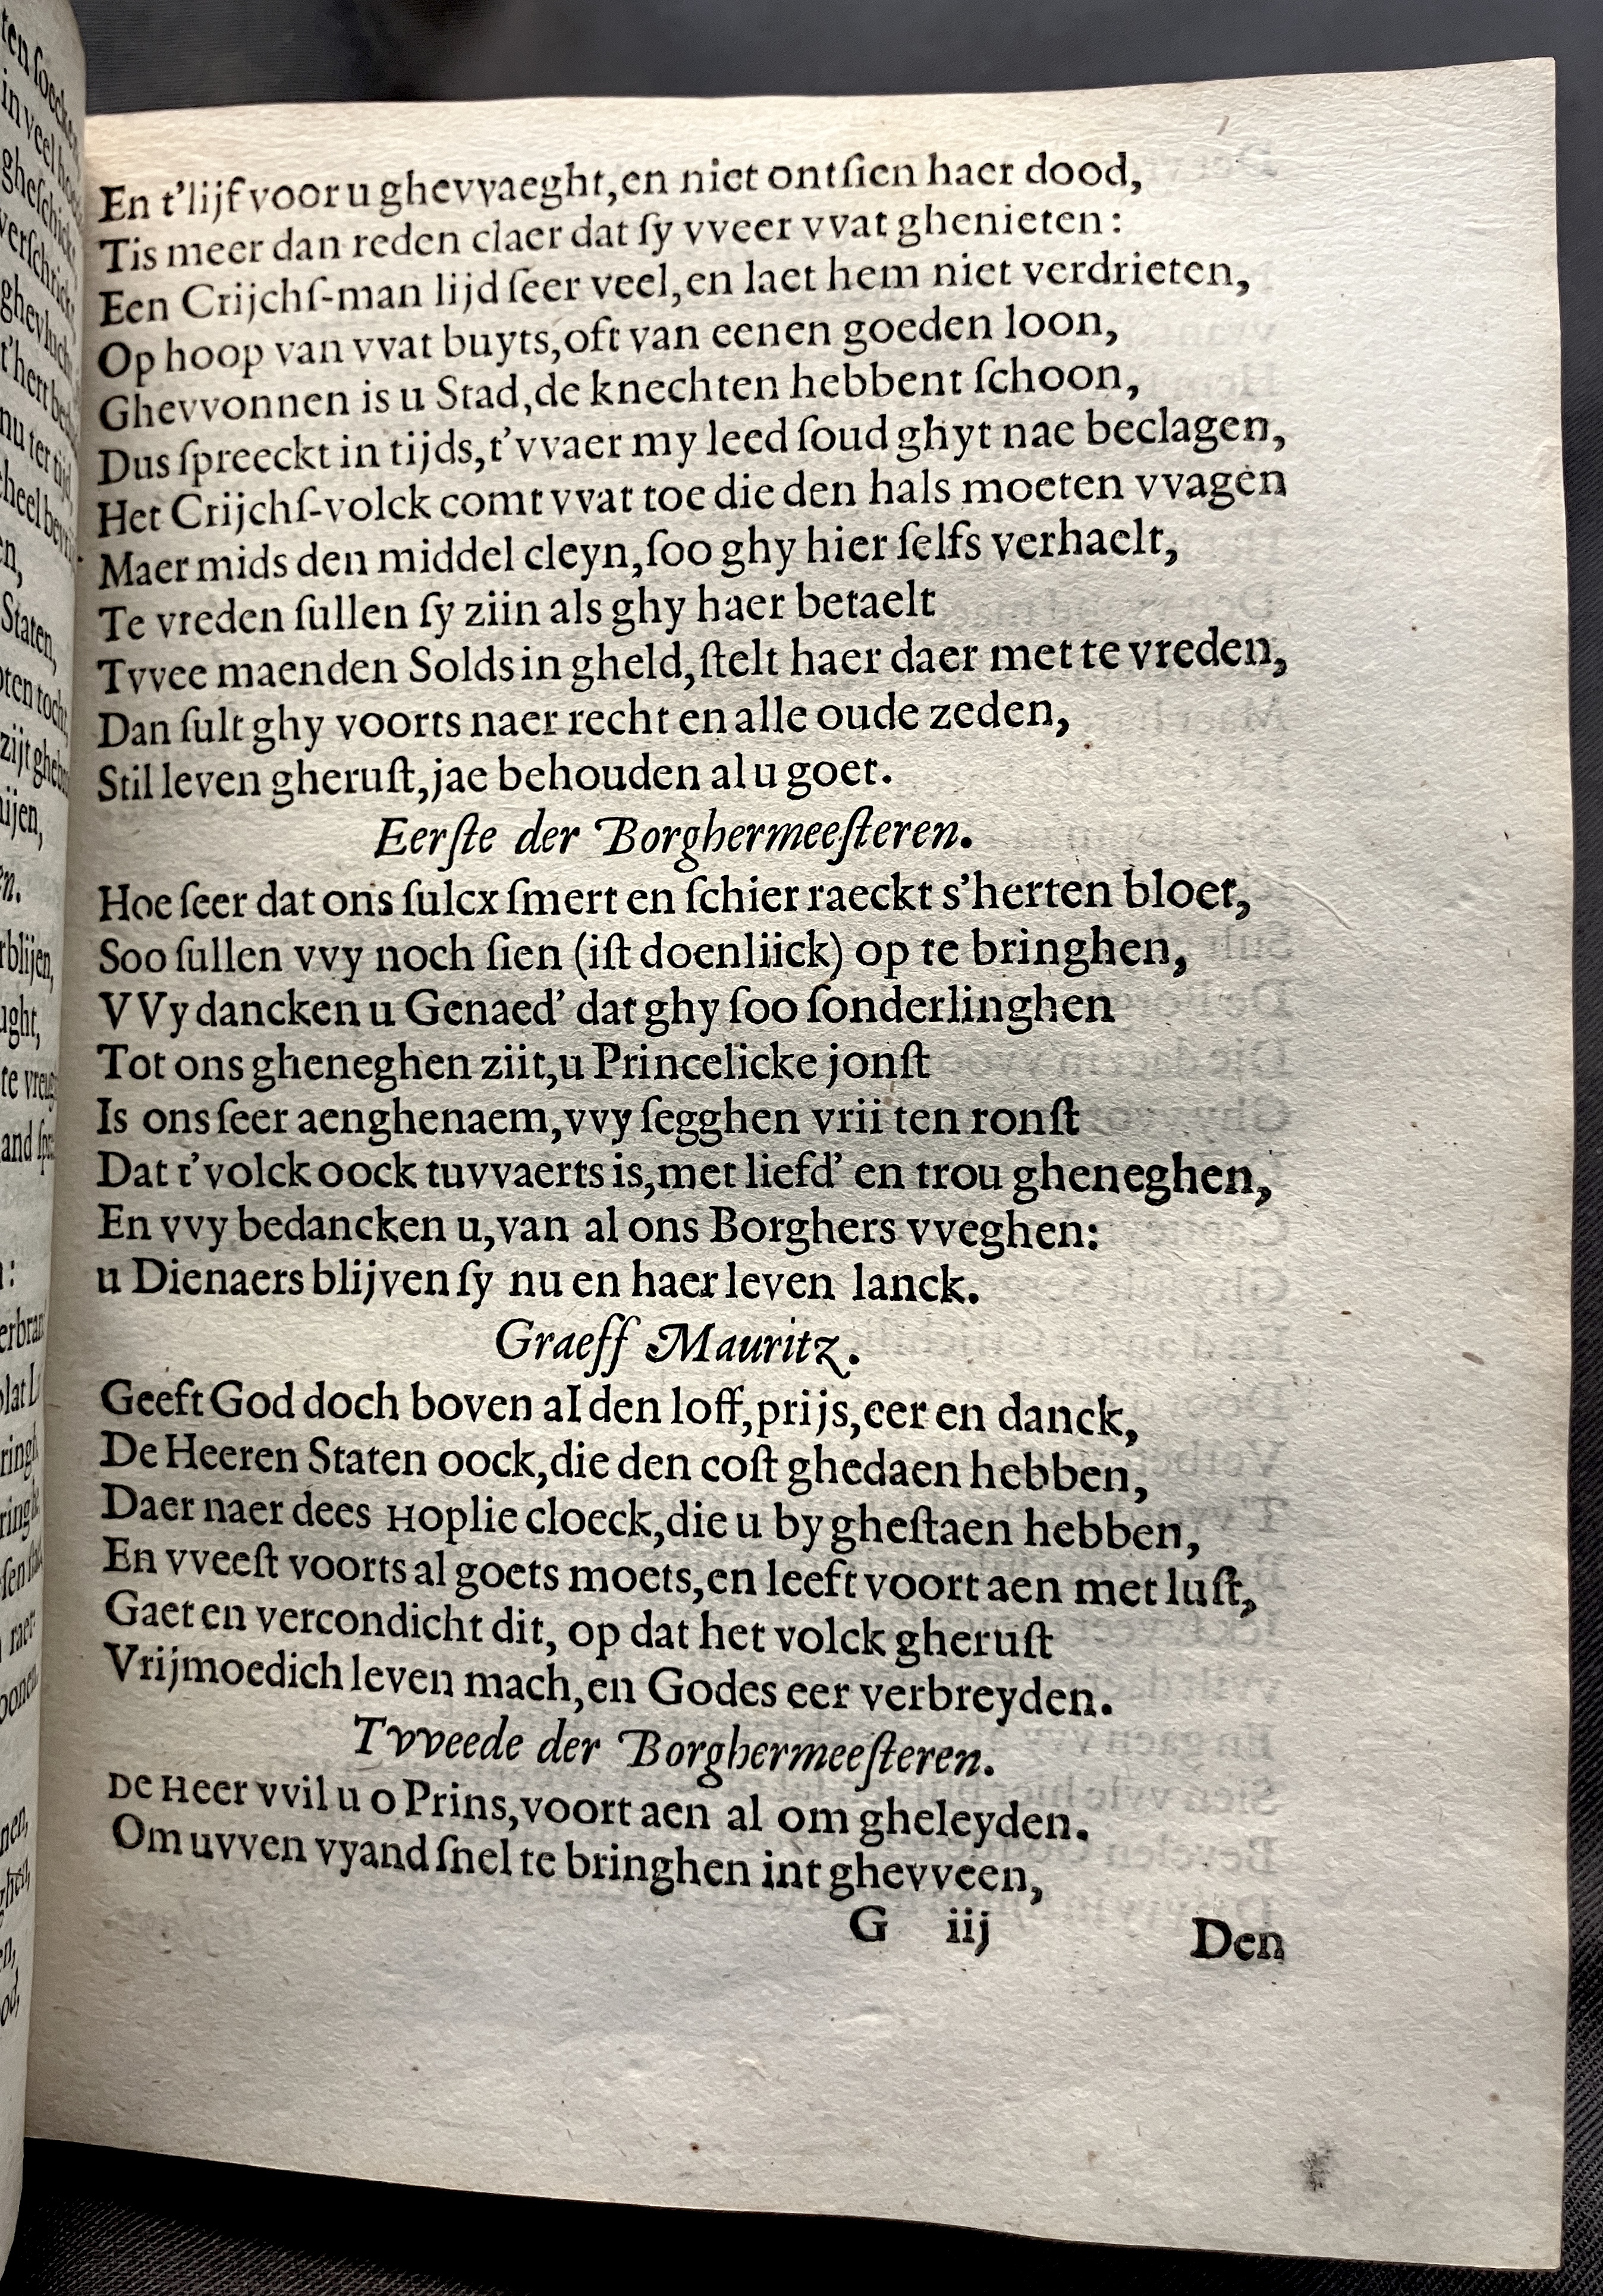 En t'lijf voor u ghevvaeght,en niet ontſien haer dood,
Tis meer dan reden claer dat ſy vveer vvat ghenieten:
Een Crijchſ-man lijd ſeer veel,en laet hem niet verdrieten,
Op hoop van vvat buyts,oft van eenen goeden loon,
Ghevvonnen is u Stad,de knechten hebbent ſchoon,
Dus ſpreeckt in tijds,t'vvaer my leed ſoud ghyt nae beclagen,
Het Crijchſ-volck comt vvat toe die den hals moeten vvagen
Maer mids den middel cleyn,ſoo ghy hier ſelfs verhaelt,
Te vreden ſullen ſy ziin als ghy haer betaelt
Tvvee maenden Solds in gheld,ſtelt haer daer met te vreden,
Dan ſult ghy voorts naer recht en alle oude zeden,
Stil leven gheruſt,jae behouden al u goet.
Eerſte der Borghermeeſteren.
Hoe ſeer dat ons ſulcx ſmert en ſchier raeckt s'herten bloet,
Soo ſullen vvy noch ſien (iſt doenliick) op te bringhen,
VVy dancken u Genaed' dat ghy ſoo ſonderlinghen
Tot ons gheneghen ziit,u Princelicke jonſt
Is ons ſeer aenghenaem,vvy ſegghen vrii ten ronſt
Dat t'volck oock tuvvaerts is,met liefd' en trou gheneghen,
En vvy bedancken u,van al ons Borghers vveghen:
u Dienaers blijven ſy nu en haer leven lanck.
Graeff Mauritz.
Geeft God doch boven al den loff,prijs,eer en danck,
De Heeren Staten oock,die den coſt ghedaen hebben,
Daer naer dees Hoplie cloeck,die u by gheſtaen hebben,
En vveeſt voorts al goets moets,en leeft voort aen met luſt,
Gaet en vercondicht dit, op dat het volck gheruſt
Vrijmoedich leven mach,en Godes eer verbreyden.
Tvveede der Borghermeeſteren.
De Heer vvil u o Prins,voort aen al om gheleyden.
Om uvven vyand ſnel te bringhen int ghevveen,
G iij Den